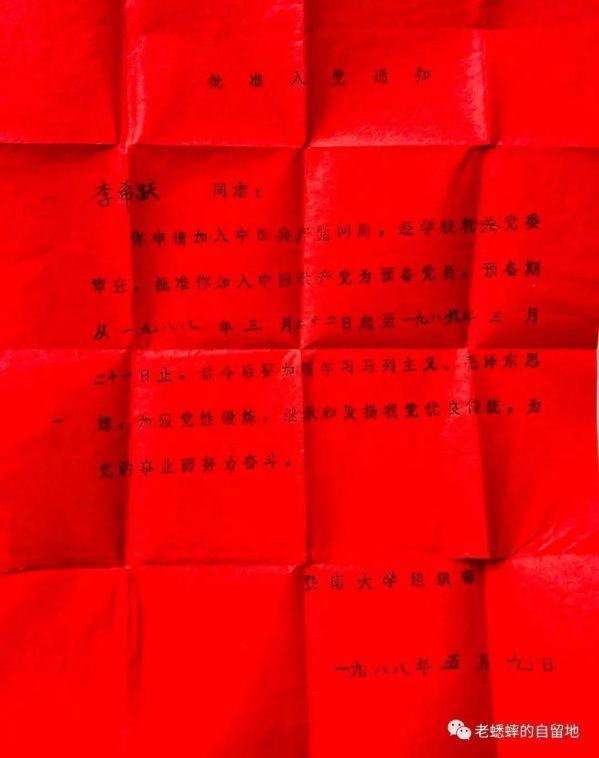 批准入党通知
李希跃 同志：
你申请加入中国共产党问题，经学校机关党委
审查。批准你加入中国共产党为预备党员。预备期
从一九八八年三月二十二日起至一九八九年三月
二十一日止。希今后要加强学习马列主义、毛泽东思
想，加强党性锻炼，继承和发扬我党优良传统，为
党的事业而努力奋斗。
暨南大学组织部
一九八八年五月九日
老蟋蟀的自留地